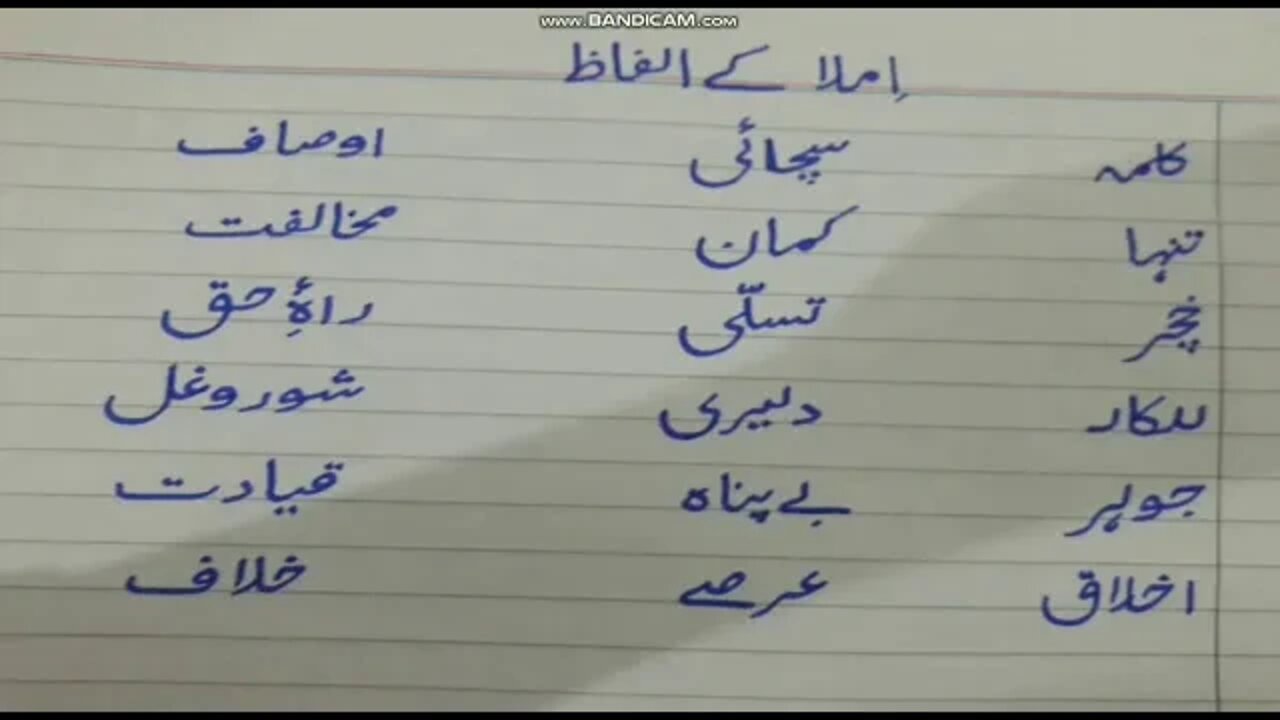 www.BANDICAM.com
اِملا کے الفاظ
کلمہ سچائی اوصاف
تنہا کمان مخالفت
خچر تسلّی راۂِ حق
للکار دلیری شوروغل
جوہر بے پناہ قیادت
اخلاق عرصے خلاف